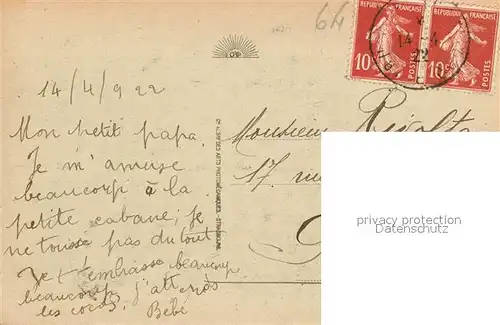 64
RÉPUBLIQUE FRANÇAISE
RÉPUBLIQUE FRANÇAISE
10c
POSTES
10c
POSTES
14 - 4
22
14/4/922
Mon petit papa.
Je m'amuse
beaucoup à la
petite cabane, je
ne tousse pas du tout
Je t'embrasse beaucoup
beaucoup, j'attends
les cocos. Bébé
Cie ALSne DES ARTS PHOTOMÉCANIQUES - STRASBOURG
Monsieur
17 rue
privacy protection
Datenschutz